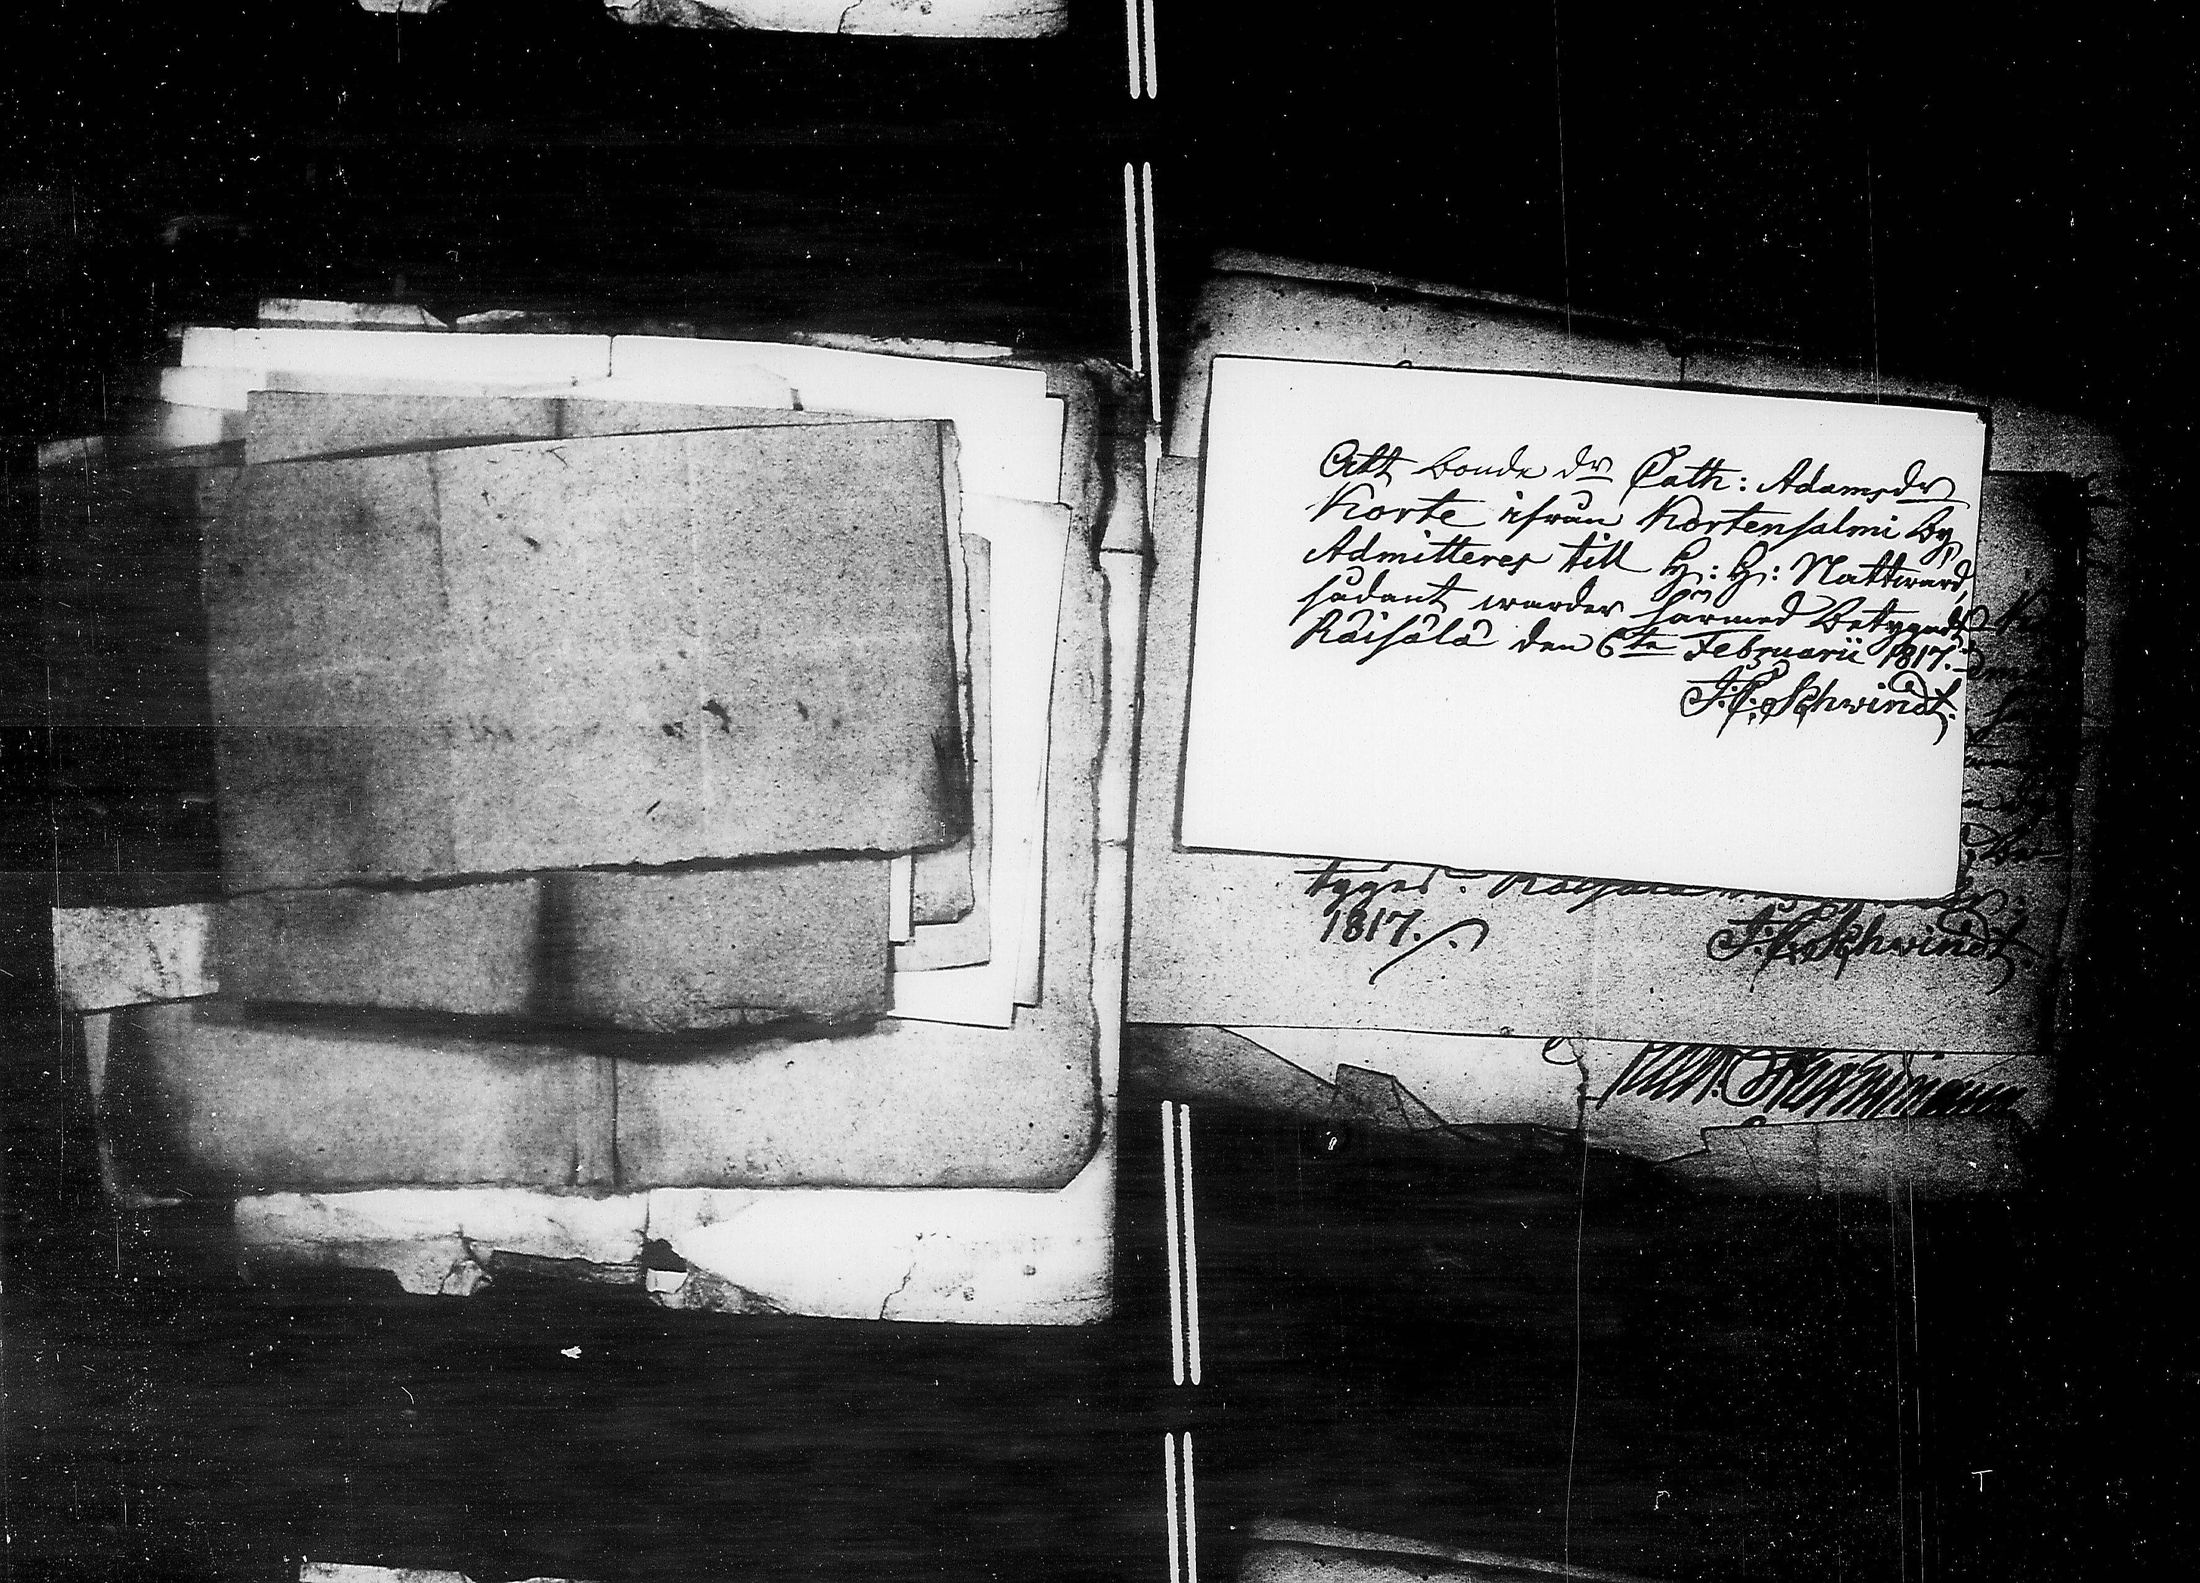 Att bonde dr Cath: Adamsdr
Korte ifrån Kortensalmi by
Admitteres till H: H: Nattward,
sådant warder härmed betygadt
Räisälä den 6te Februarii 1817.
J: C: Schwindt.
tyges. Räisälä
1817.
J. C. Schwindt.